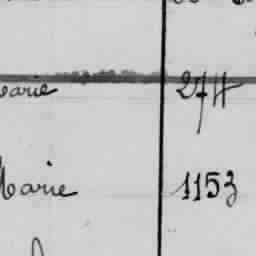 Marie 274
Marie 1153